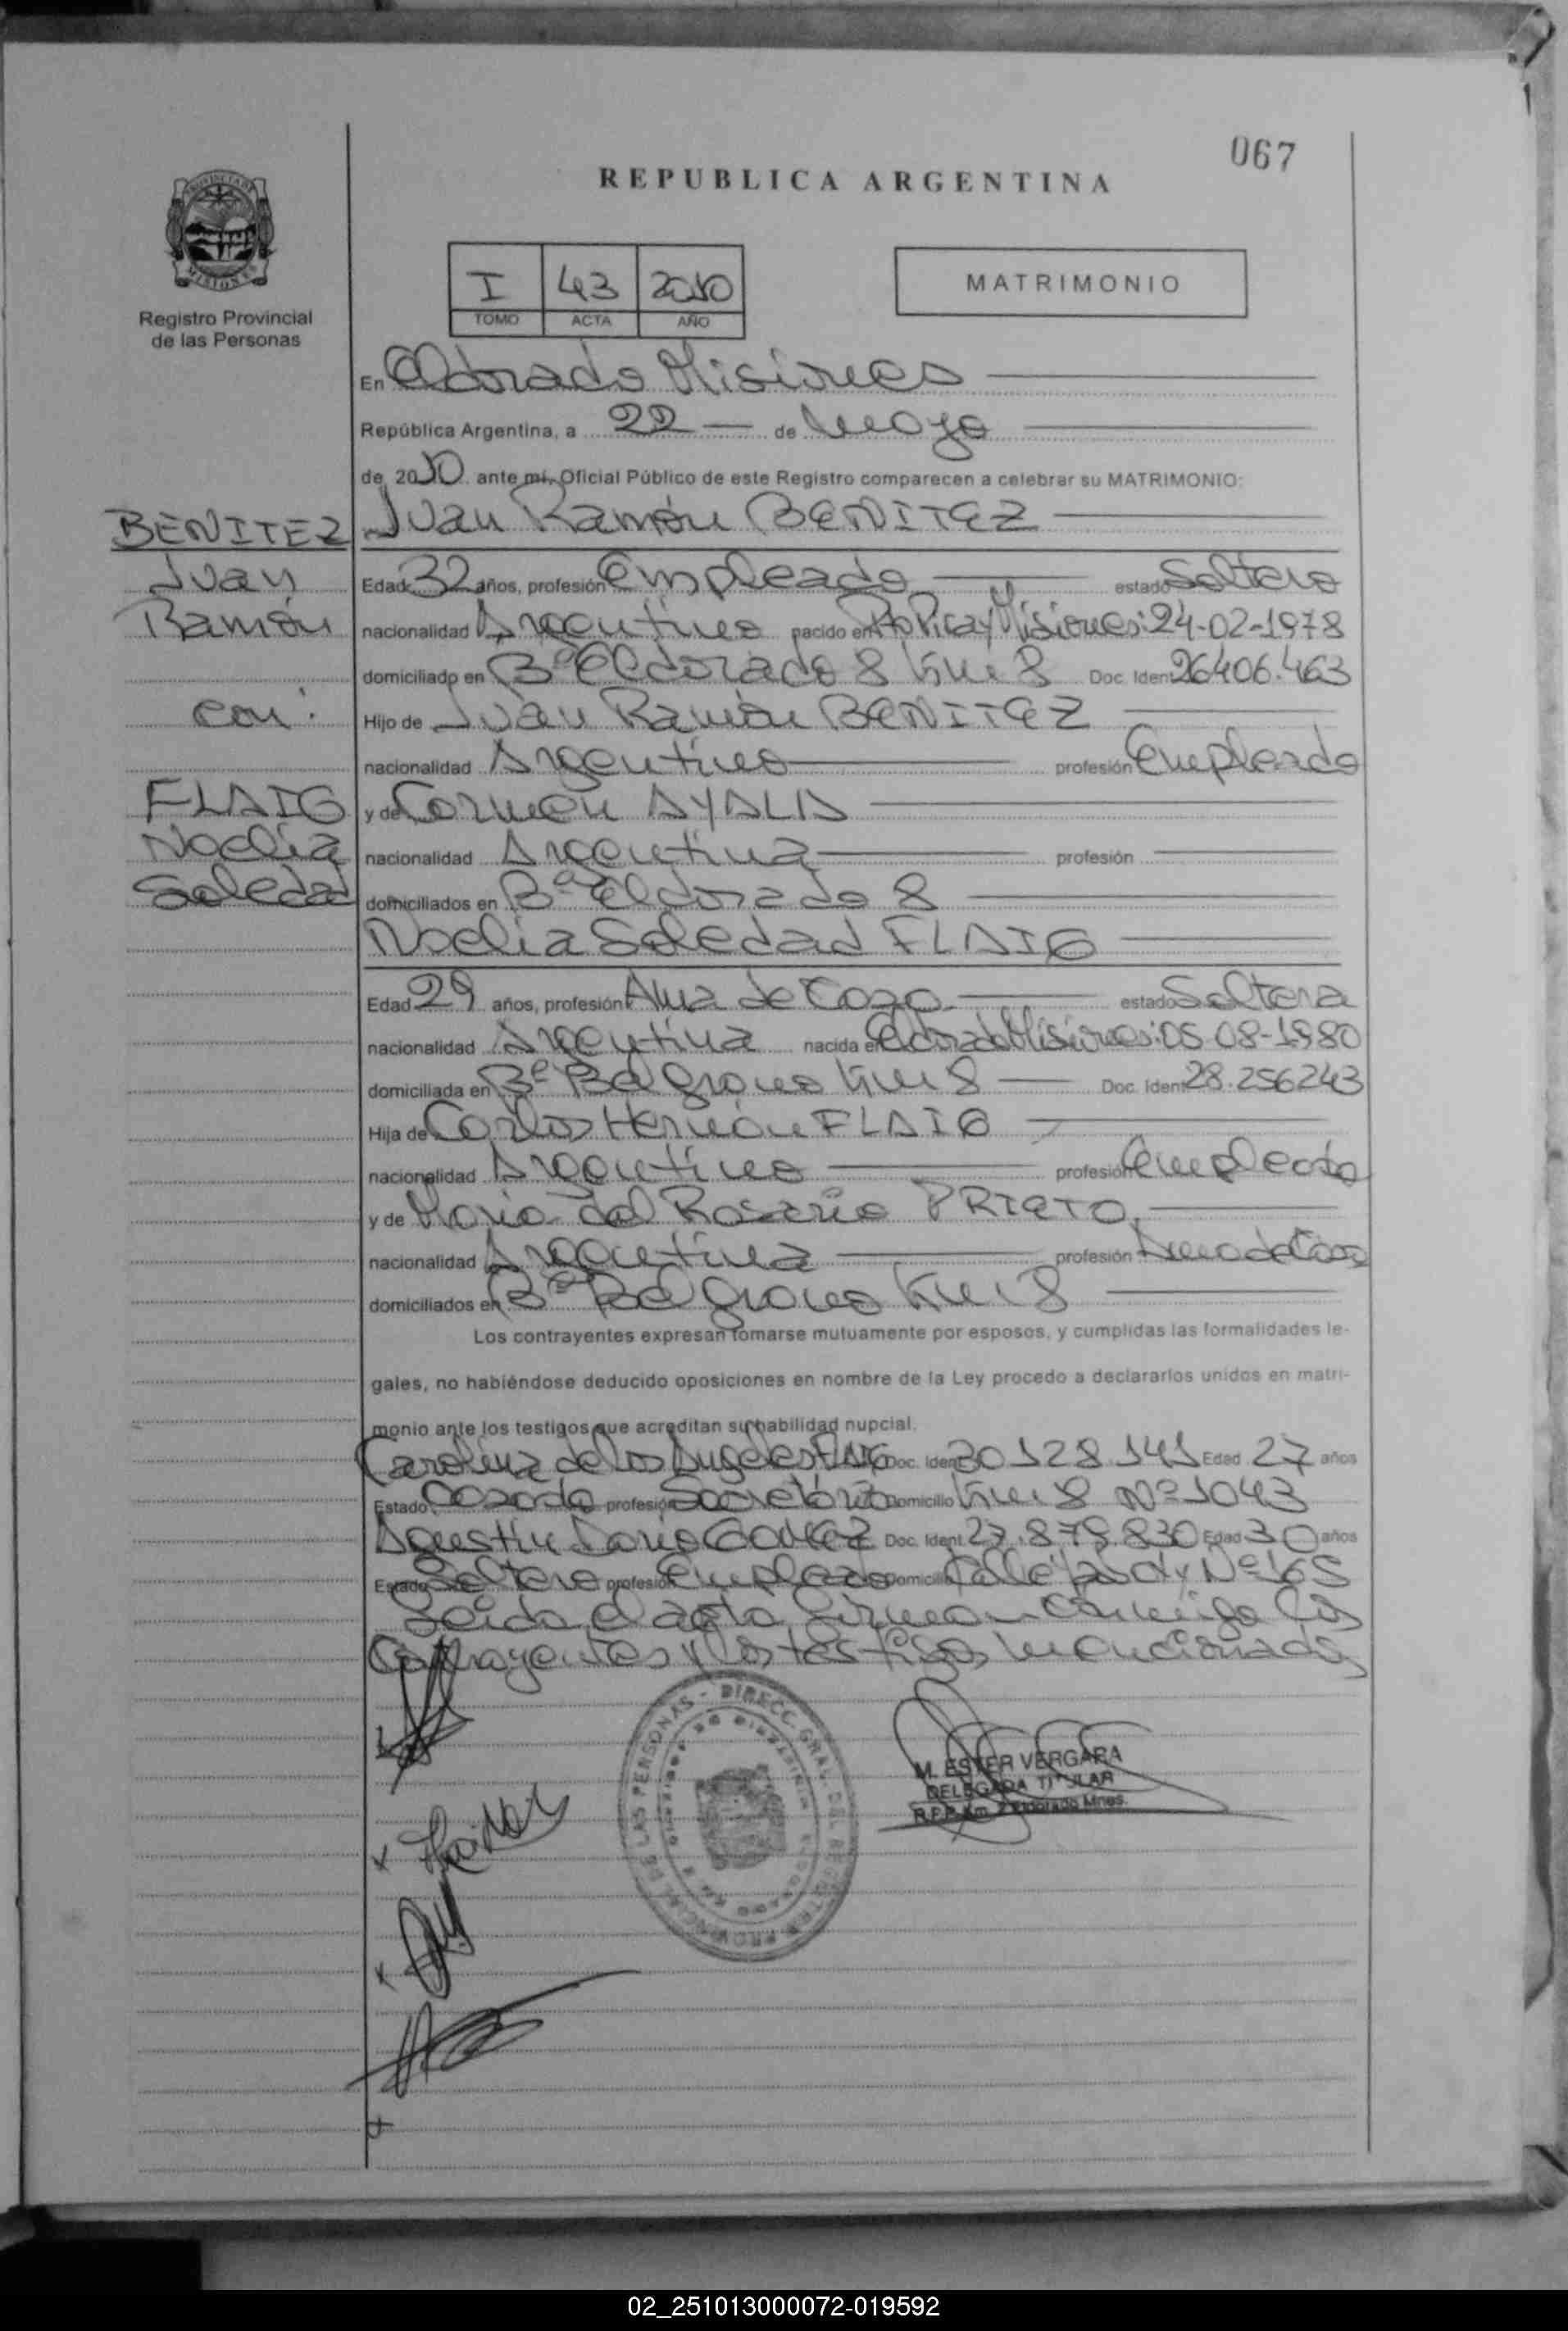 067
REPUBLICA ARGENTINA
PROVINCIA DE MISIONES
Registro Provincial
de las Personas
I 43 2010
TOMO ACTA AÑO
MATRIMONIO
En Eldorado Misiones
República Argentina, a 22 de Mayo
de 2010 ante mí, Oficial Público de este Registro comparecen a celebrar su MATRIMONIO:
BENITEZ
Juan
Ramón
con:
FLAIG
Noelia
Soledad
Juan Ramón BENITEZ
Edad 32 años, profesión Empleado estado Soltero
nacionalidad Argentino nacido en Pto Piray Misiones: 24-02-1978
domiciliado en Bº Eldorado 8 Km 8 Doc. Ident 26406.463
Hijo de Juan Ramón BENITEZ
nacionalidad Argentino profesión Empleado
y de Carmen AYALA
nacionalidad Argentina profesión
domiciliados en Bº Eldorado 8
Noelia Soledad FLAIG
Edad 29 años, profesión Ama de Casa estado Soltera
nacionalidad Argentina nacida en Eldorado Misiones: 05-08-1980
domiciliada en Bº Belgrano Km 8 Doc. Ident 28.256243
Hija de Carlos Hernán FLAIG
nacionalidad Argentino profesión Empleado
y de María del Rosario PRIETO
nacionalidad Argentina profesión Ama de Casa
domiciliados en Bº Belgrano Km 8
Los contrayentes expresan tomarse mutuamente por esposos, y cumplidas las formalidades le-
gales, no habiéndose deducido oposiciones en nombre de la Ley procedo a declararlos unidos en matri-
monio ante los testigos que acreditan su habilidad nupcial.
Carolina de los Angeles FLAIG Doc. Ident 30128141 Edad 27 años
Estado Casada profesión Secretária Domicilio Km 8 Nº 1043
Agustín Dario GOMEZ Doc. Ident. 27.879.830 Edad 30 años
Estado Soltero profesión Empleado Domicilio Calle Nº 165
Leída el acta firman conmigo los
Contrayentes y los testigos mencionados
DIRECC. GRAL. DEL REGISTRO PROVINCIAL DE LAS PERSONAS -
M. ESTER VERGARA
DELEGADA TITULAR
R.P.P. Km. Eldorado Mnes.
02_251013000072-019592